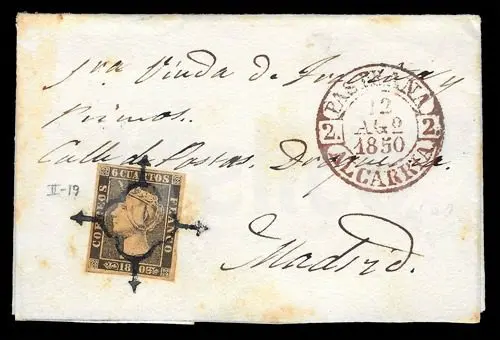 Sra. Viuda de y
Primos.
Calle de Postas,
Madrid.
II-19
PASTRANA
12
AGO
1850
2. 2.
ALCARRIA
6 CUARTOS
CORREOS FRANCO
1850